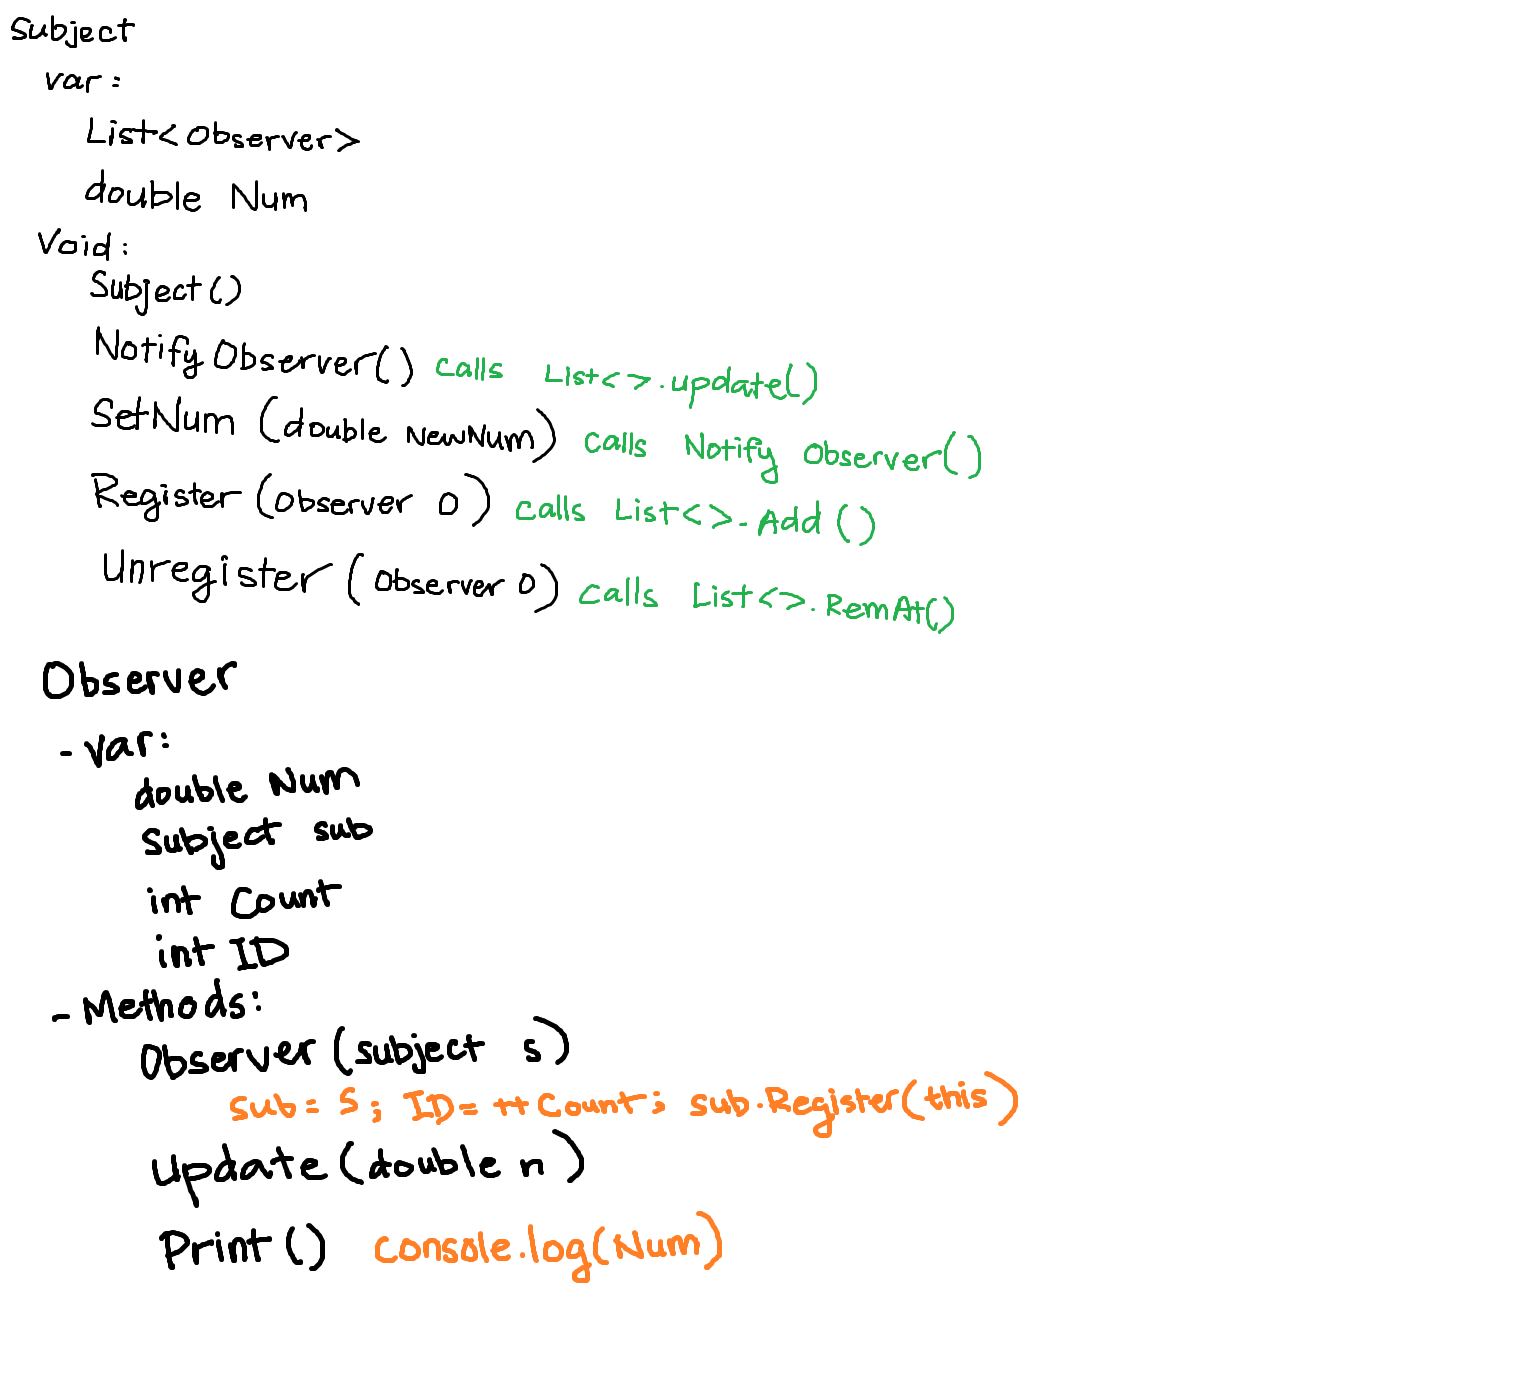 Subject
var:
List<Observer>
double Num
Void:
Subject()
Notify Observer() calls List<>.update()
SetNum (double NewNum) calls Notify Observer()
Register (Observer O) calls List<>.Add()
Unregister (Observer O) calls List<>.RemAt()
Observer
- var:
double Num
Subject sub
int Count
int ID
- Methods:
Observer (subject s)
sub = S; ID = ++Count; sub.Register(this)
Update (double n)
Print() console.log(Num)